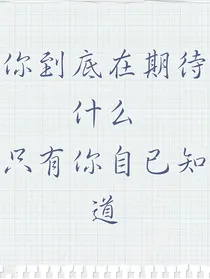 你到底在期待
什么
只有你自己知
道